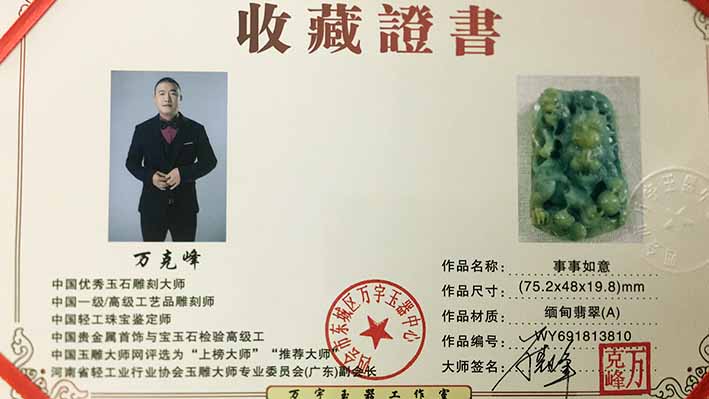 收藏證書
万克峰
中国优秀玉石雕刻大师
中国一级/高级工艺品雕刻师
中国轻工珠宝鉴定师
中国贵金属首饰与宝玉石检验高级工
中国玉雕大师网评选为“上榜大师”“推荐大师”
河南省轻工业行业协会玉雕大师专业委员会(广东)副会长
会市东城区万宇玉器中心
作品名称： 事事如意
作品尺寸： (75.2x48x19.8)mm
作品材质： 缅甸翡翠(A)
作品编号： WY691813810
大师签名：
万克峰
万宇玉器工作室